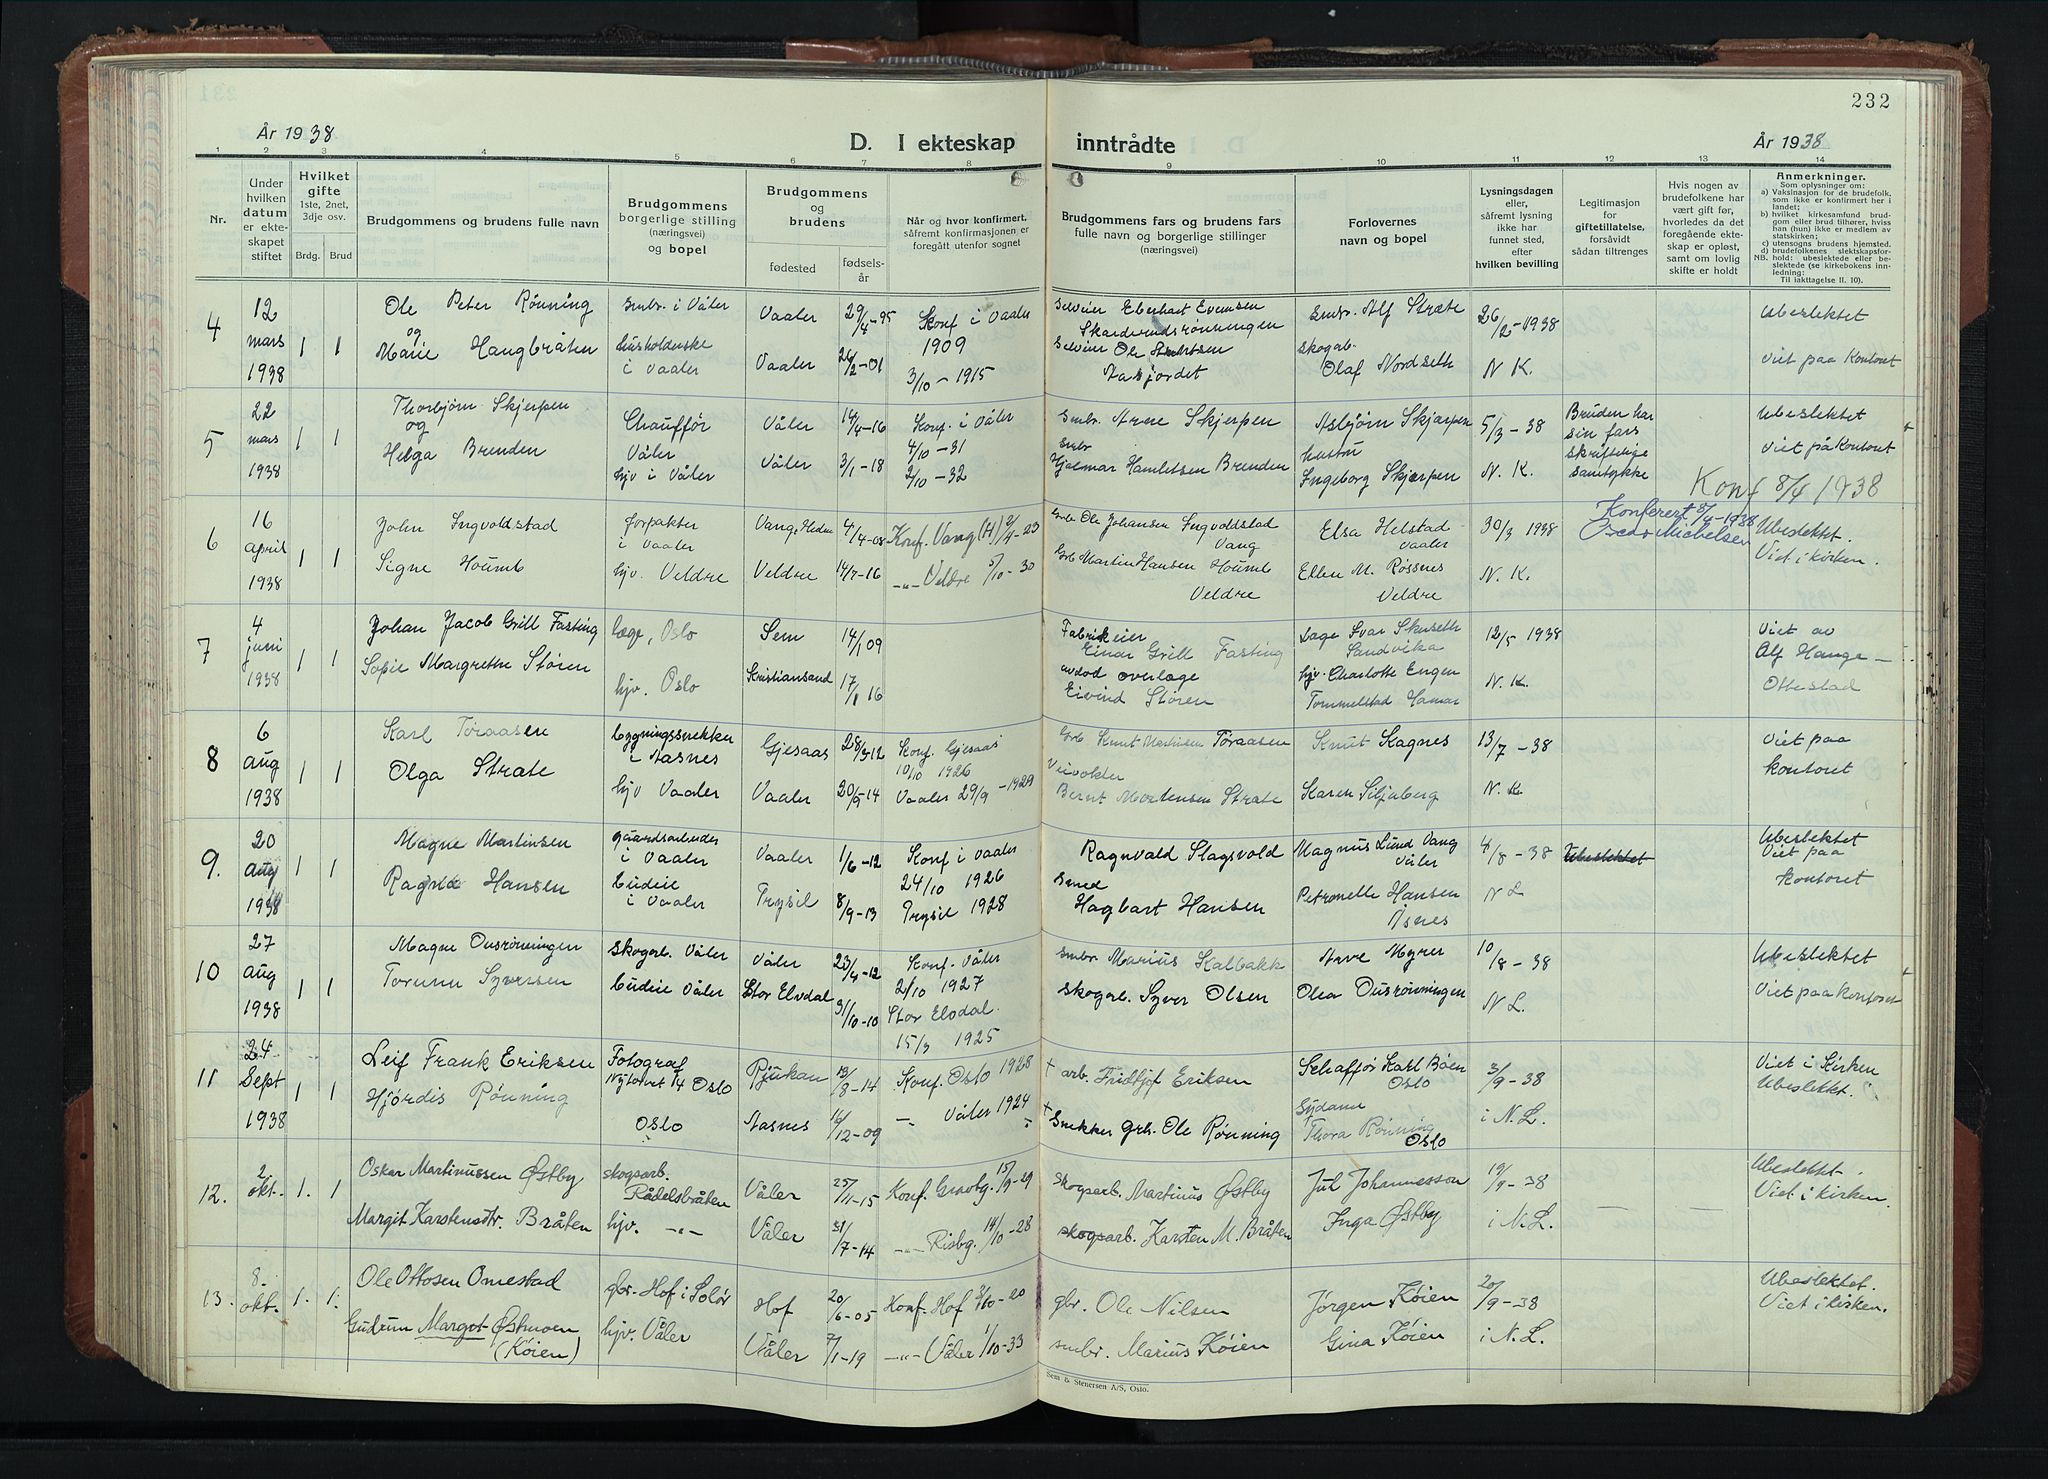 232
År 1938
D. I ekteskap inntrådte
År 1938
1 2 3 4 5 6 7 8 9 10 11 12 13 14
Nr.
Under hvilken datum er ekteskapet stiftet
Hvilket gifte 1ste, 2net, 3dje osv.
Brdg. Brud
Brudgommens og brudens fulle navn
Brudgommens borgerlige stilling (næringsvei) og bopel
Brudgommens og brudens
fødested
fødselsår
Når og hvor konfirmert, såfremt konfirmasjonen er foregått utenfor sognet
Brudgommens fars og brudens fars fulle navn og borgerlige stillinger (næringsvei)
Forlovernes navn og bopel
Lysningsdagen eller, såfremt lysning ikke har funnet sted, efter hvilken bevilling
Legitimasjon for giftetillatelse, forsåvidt sådan tiltrenges
Hvis nogen av brudefolkene har vært gift før, hvorledes da det foregående ekteskap er opløst, samt om lovlig skifte er holdt
Anmerkninger.
Som oplysninger om:
a) Vaksinasjon for de brudefolk, som ikke er konfirmert her i landet;
b) hvilket kirkesamfund brudgom eller brud tilhører, hviss han (hun) ikke er medlem av statskirken;
c) utensogns brudens hjemsted.
d) brudefolkenes slektskapsforhold: ubeslektede eller beslektede (se kirkebokens innledning:
NB.
Til iakttagelse II. 10).
4 12 mars 1938 1 1
Ole Peter Rönning
og
Marie Haugbråten
Smbr. i Våler
husholderske i Vaaler
Vaaler 29/4-95
Vaaler 26/2-01
Konf i Vaaler 1909
3/10 - 1915
Selveier Eberhart Evensen
Selveier Ole
Smbr. Alf Stræte
skogarb.
Olaf Nordseth
26/2-1938
N K.
Ubeslektet
Viet paa Kontoret
5 22 mars 1938 1 1
Thorbjørn Skjerpen
og
Helga Brenden
Chauffør
Våler
hjv i Våler
Våler 14/4-16
Våler 3/1-18
Konf. i Våler
4/10-31
2/10-32
Smbr. Arne Skjerpen
Smbr
Hjalmar Hamletsen Brenden
Asbjørn Skjærpen
hustru
Ingeborg Skjærpen
5/3-38
N. K.
Bruden har sin fars skriftelige samtykke
Ubeslektet
Viet på Kontoret
Konf 8/4 1938
6 16 april 1938 1 1
John Ingvoldstad
Signe Houmb
forpakter i Vaaler
hjv. Veldre
Vang, Hedm 4/4-08
Veldre 14/7-16
Konf. Vang (H) 2/4-23
-"- Veldre 5/10-30
Grb Ole Johansen Ingvoldstad
Vang
Grb Martin Hansen Houmb
Veldre
Elsa Helstad
Vaaler
Ellen M. Røssnes
Veldre
30/3 1938
N. K.
Konferert 8/4-1938
Michelsen
Ubeslektet.
Viet i kirken.
7 4 juni 1938 1 1
Johan Jacob Grill Fasting
Sofie Margrethe Stören
læge, Oslo
hjv. Oslo
Sem 14/1 09
Kristiansand 17/1 16
Fabrikeier
Einar Grill Fasting
avdöd overlæge
Eivind Stören
Læge Ivar Skuseth
Sandvika
hjv. Charlotte Engen
Tommelstad Hamar
12/5 1938
N. K.
Viet av
Alf Hauge -
Ottestad
8 6 aug 1938 1 1
Karl Töraasen
Olga Stræte
bygningssnekker i Aasnes
hjv Vaaler
Gjesaas 28/3-12
Vaaler 20/5-14
Konf. Gjesaas
10/10 1926
Vaaler 29/9-1929
Grb Knut Martinsen Töraasen
Veivokter
Bernt Mortensen Stræte
Knut Kagnes
Karen Siljuberg
13/7-38
N. K.
Viet paa kontoret
9. 20 aug 1938 1 1
Magne Martinsen
Ragna Hansen
gaardsarbeider i Vaaler
budeie i Vaaler
Vaaler 1/6-12
Trysil 8/9-13
Konf i Vaaler
24/10 1926
Trysil 1928
Ragnvald Slagsvold
Smed
Hagbart Hansen
Magnus Lund Vang
Våler
Petronelle Hansen
Åsnes
4/8-38
N L
Ubeslektet
Ubeslektet
Viet paa kontoret
10 27 aug 1938 1 1
Magne Ousrönningen
Torunn Syversen
Skogarb. Våler
budeie Våler
Våler 23/4-12
Stor Elvdal 31/10-10
Konf. Våler
2/10 1927
Stor Elvdal.
15/3 1925
Smbr Marius Kalbakk
Skogarb. Syver Olsen
Arve Myrer
Olea Ousrönningen
10/8-38
N L.
Ubeslektet
Viet paa kontoret
11 24 Sept 1938 1 1
Leif Frank Eriksen
Hjördis Rönning
Fotograf
Nytorvet 14 Oslo
Oslo
Rjukan 13/8-14
Aasnes 14/12-09
Konf. Oslo 1928
- Våler 1924
+ arb. Fridtjof Eriksen
+ Snekker Grb. Ole Rönning
Schaffør Karl Bøen
Oslo
Sydame
Thora Rönning
Oslo
3/9-38
i N. L.
Viet i Kirken
Ubeslekt.
12. 2 okt. 1. 1
Oskar Martinussen Østby
Margit Karstensdtr. Bråten
skogsarb.
Rådelsbråten
hjv. -"-
Våler 25/11-15
Våler 31/7-14
Konf. Gravbg. 15/9-29
-"- Risbg. 14/10-28
skogsarb. Martinus Østby
skogsarb. Karsten M. Bråten
Jul Johannesson
Inga Østby
19/9-38
i N. L.
Ubeslekt.
Viet i kirken.
13. 8. okt. 1. 1.
Ole Ottosen Omestad
Gudrun Margot Østmoen (Køien)
gbr. Hof i Solör
hjv. Våler
Hof 20/6-05
Våler 7/1-19
Konf. Hof 3/10-20
-"- Våler 1/10-33
gbr. Ole Nilsen
smbr. Marius Køien
Jörgen Køien
Gina Køien
20/9-38
i N. L.
Ubeslektet.
Viet i kirken.
Sem & Stenersen A/S, Oslo.